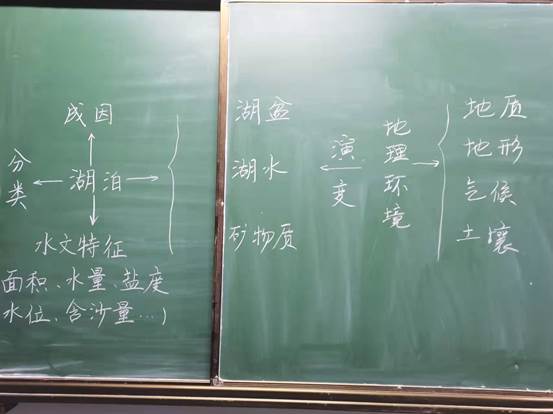 成因
分类
湖泊
水文特征
面积、水量、盐度
水位、含沙量…)
湖盆
湖水
矿物质
演变
地理环境
地质
地形
气候
土壤